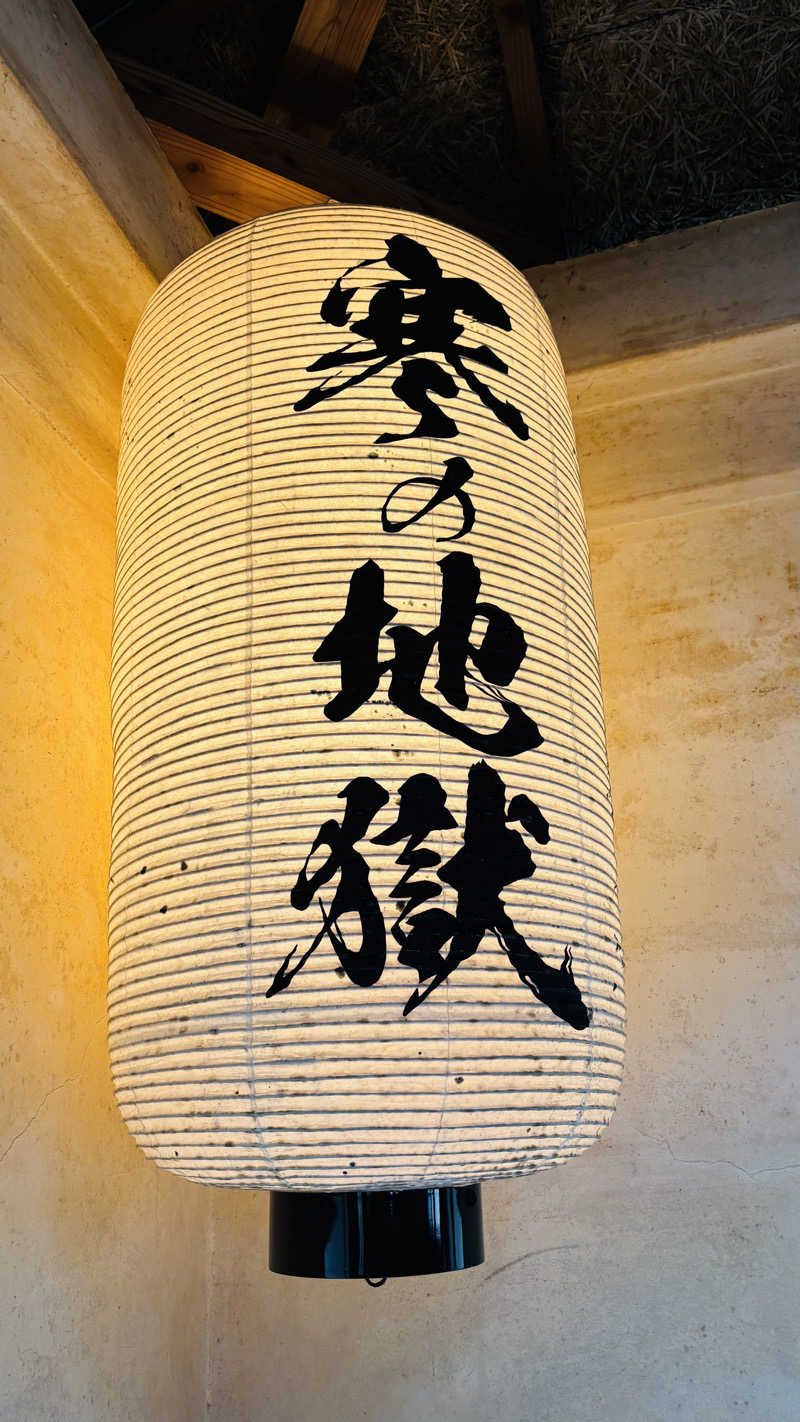 寒の地獄